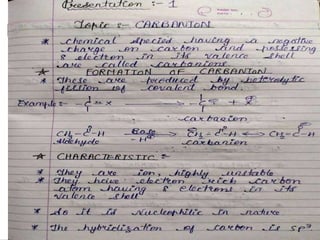 Presentation :- 1
Topic :- CARBANION
* chemical species having a negative
charge on carbon and possessing
8 electron in its valence shell
are called carbanions.
☆ FORMATION OF CARBANION
* These are produced by heterolytic
fission of covalent bond.
Example:-
carbanion
CH₃-C-H Base -H⁺ CH₂-C-H ⟷ CH₂=C-H
aldehyde carbanion
☆ CHARACTERISTIC :-
* They are ion, highly unstable
* They have electron rich carbon
atom having 8 electrons in its
valence shell
* So it is Nucleophilic in nature
* The hybridization of carbon is sp³